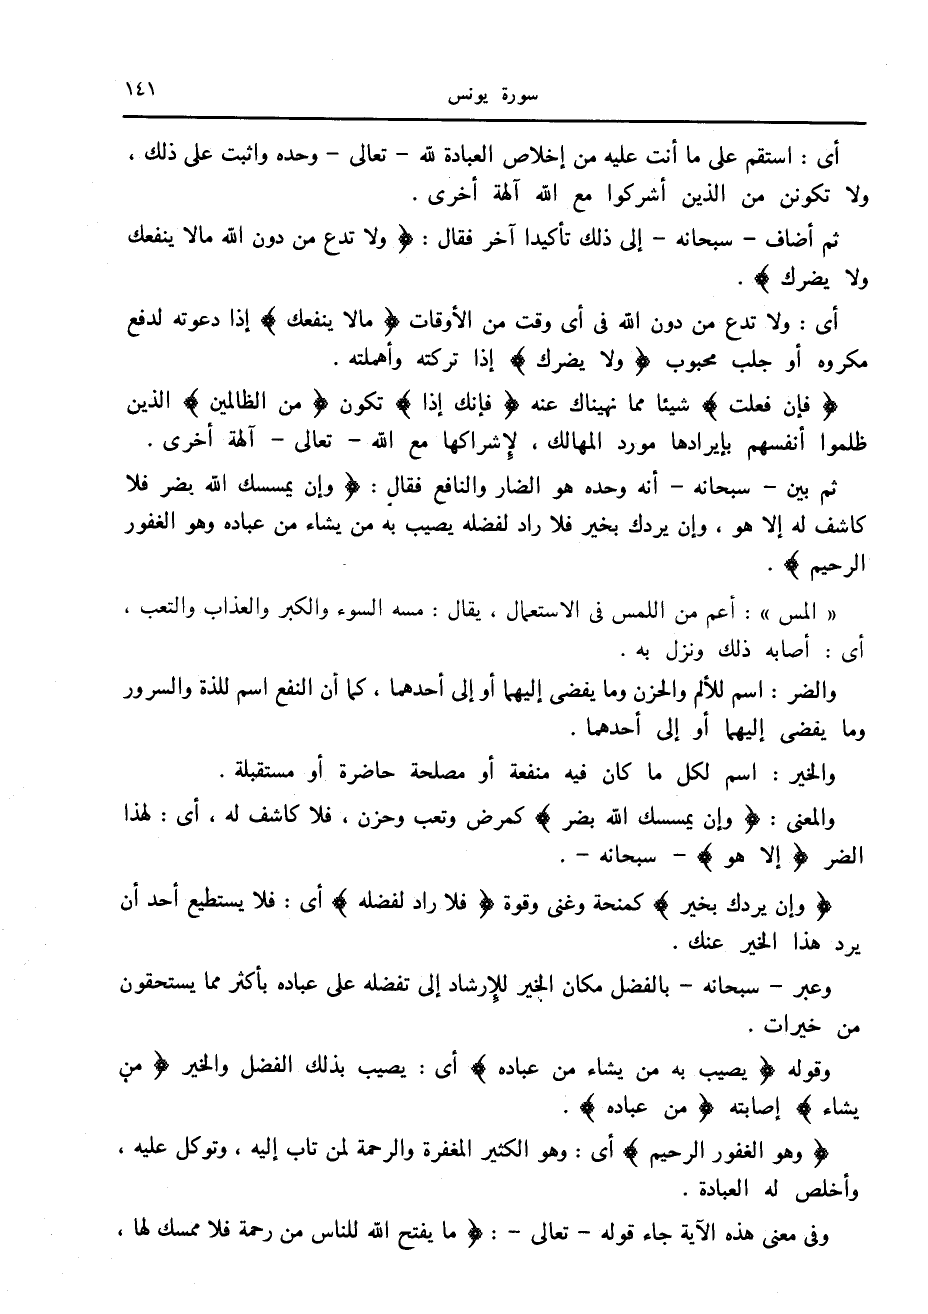 سورة يونس ١٤١
أى : استقم على ما أنت عليه من إخلاص العبادة لله – تعالى – وحده واثبت على ذلك ،
ولا تكونن من الذين أشركوا مع الله آلهة أخرى .
ثم أضاف – سبحانه – إلى ذلك تأكيدا آخر فقال : ﴿ ولا تدع من دون الله مالا ينفعك
ولا يضرك ﴾ .
أى : ولا تدع من دون الله فى أى وقت من الأوقات ﴿ مالا ينفعك ﴾ إذا دعوته لدفع
مكروه أو جلب محبوب ﴿ ولا يضرك ﴾ إذا تركته وأهملته .
﴿ فإن فعلت ﴾ شيئا مما نهيناك عنه ﴿ فإنك إذا ﴾ تكون ﴿ من الظالمين ﴾ الذين
ظلموا أنفسهم بإيرادها مورد المهالك ، لإشراكها مع الله – تعالى – آلهة أخرى .
ثم بين – سبحانه – أنه وحده هو الضار والنافع فقال : ﴿ وإن يمسسك الله بضر فلا
كاشف له إلا هو ، وإن يردك بخير فلا راد لفضله يصيب به من يشاء من عباده وهو الغفور
الرحيم ﴾ .
« المس » : أعم من اللمس فى الاستعمال ، يقال : مسه السوء والكبر والعذاب والتعب ،
أى : أصابه ذلك ونزل به .
والضر : اسم للألم والحزن وما يفضى إليهما أو إلى أحدهما ، كما أن النفع اسم للذة والسرور
وما يفضى إليهما أو إلى أحدهما .
والخير : اسم لكل ما كان فيه منفعة أو مصلحة حاضرة أو مستقبلة .
والمعنى : ﴿ وإن يمسسك الله بضر ﴾ كمرض وتعب وحزن ، فلا كاشف له ، أى : لهذا
الضر ﴿ إلا هو ﴾ – سبحانه – .
﴿ وإن يردك بخير ﴾ كمنحة وغنى وقوة ﴿ فلا راد لفضله ﴾ أى : فلا يستطيع أحد أن
يرد هذا الخير عنك .
وعبر – سبحانه – بالفضل مكان الخير للإرشاد إلى تفضله على عباده بأكثر مما يستحقون
من خيرات .
وقوله ﴿ يصيب به من يشاء من عباده ﴾ أى : يصيب بذلك الفضل والخير ﴿ من
يشاء ﴾ إصابته ﴿ من عباده ﴾ .
﴿ وهو الغفور الرحيم ﴾ أى : وهو الكثير المغفرة والرحمة لمن تاب إليه ، وتوكل عليه ،
وأخلص له العبادة .
وفى معنى هذه الآية جاء قوله – تعالى – : ﴿ ما يفتح الله للناس من رحمة فلا ممسك لها ،